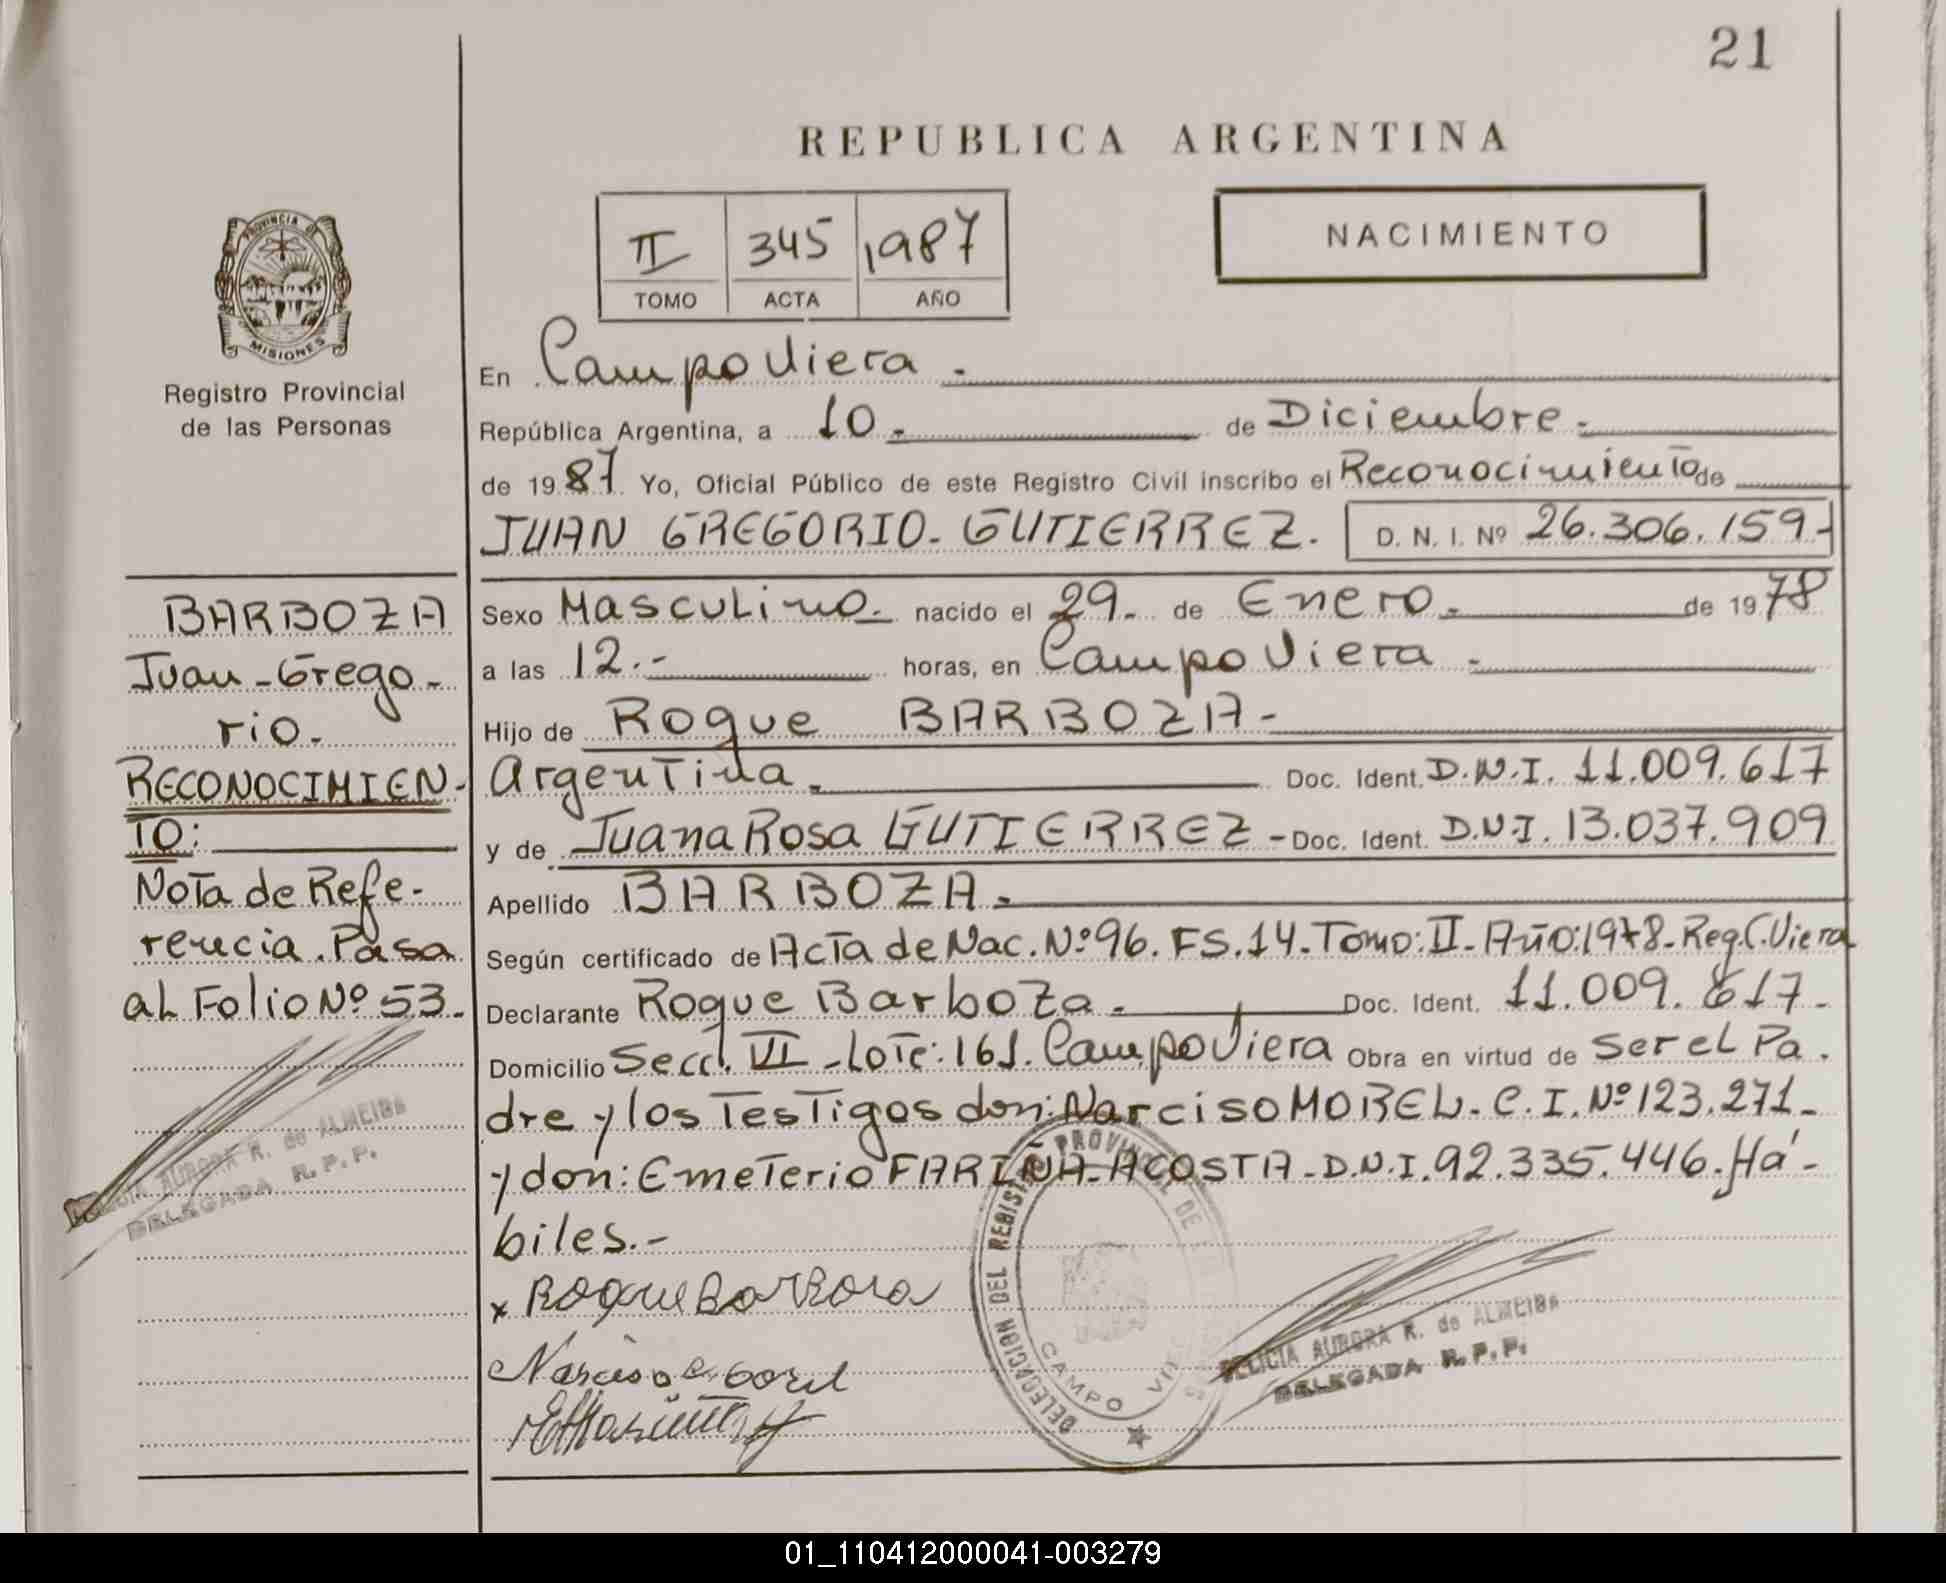 21
REPUBLICA ARGENTINA
II 345 1987
TOMO ACTA AÑO
NACIMIENTO
PROVINCIA DE
MISIONES
Registro Provincial
de las Personas
BARBOZA
Juan-Grego-
rio.
RECONOCIMIEN-
TO:
Nota de Refe-
rencia. Pasa
al Folio Nº 53.
AURORA R. de ALMEIDA
DELEGADA R.P.P.
En Campo Viera.
República Argentina, a 10. de Diciembre.
de 1987. Yo, Oficial Público de este Registro Civil inscribo el Reconocimiento de
JUAN GREGORIO. GUTIERREZ. D. N. I. Nº 26.306.159-
Sexo Masculino. nacido el 29. de Enero. de 1978
a las 12.- horas, en Campo Viera.
Hijo de Roque BARBOZA-
Argentina. Doc. Ident. D.N.I. 11.009.617
y de Juana Rosa GUTIERREZ- Doc. Ident. D.N.I. 13.037.909
Apellido BARBOZA.
Según certificado de Acta de Nac. Nº 96. FS.14. Tomo: II- Año: 1978- Reg. C. Viera
Declarante Roque Barboza. Doc. Ident. 11.009.617-
Domicilio Secc. VI -Lote: 161. Campo Viera Obra en virtud de Ser el Pa.
dre y los Testigos don: Narciso MOREL. C.I. Nº 123.271-
y don: Emeterio FARIÑA-ACOSTA-D.N.I. 92.335.446. Há-
biles.-
x Roque Barboza
Narciso
DELEGACION DEL REGISTRO PROVINCIAL DE
CAMPO
FELICIA AURORA R. de ALMEIDA
DELEGADA R.P.P.
01_110412000041-003279